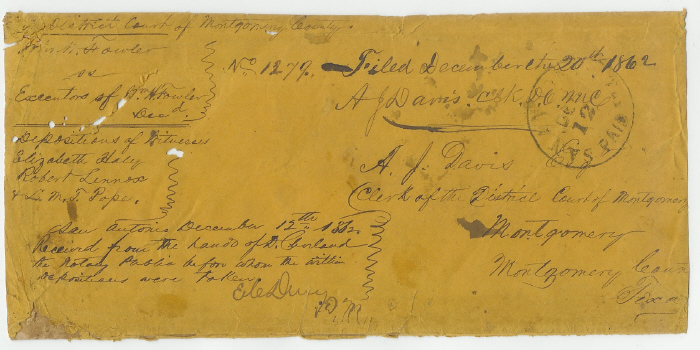 District Court of Montgomery County.
Fowler
vs
Executors of Wm. H. Fowler
Decd.
Depositions of Witnesses
Elizabeth Haly
Robert Lennox
& L. M. T. Pope.
No 1279.
Filed December the 20th 1862
A J Davis. Clk. D.C. M.C
PAID
A. J. Davis
Clerk of the District Court of Montgomery
Montgomery
Montgomery Coun
Texa
San Antonio December 12th 1862
Received from the hands of D. Corland
the Notary Public before whom the within
depositions were taken
P.M.